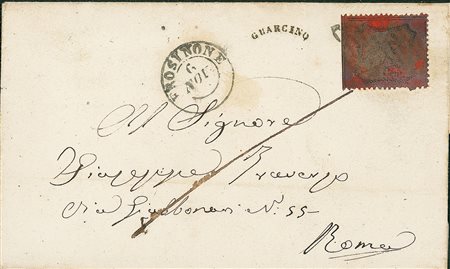 GUARCINO
FROSINONE
6
NOV
Al Signore
Giuseppe
Via Giubbonari N. 55
Roma